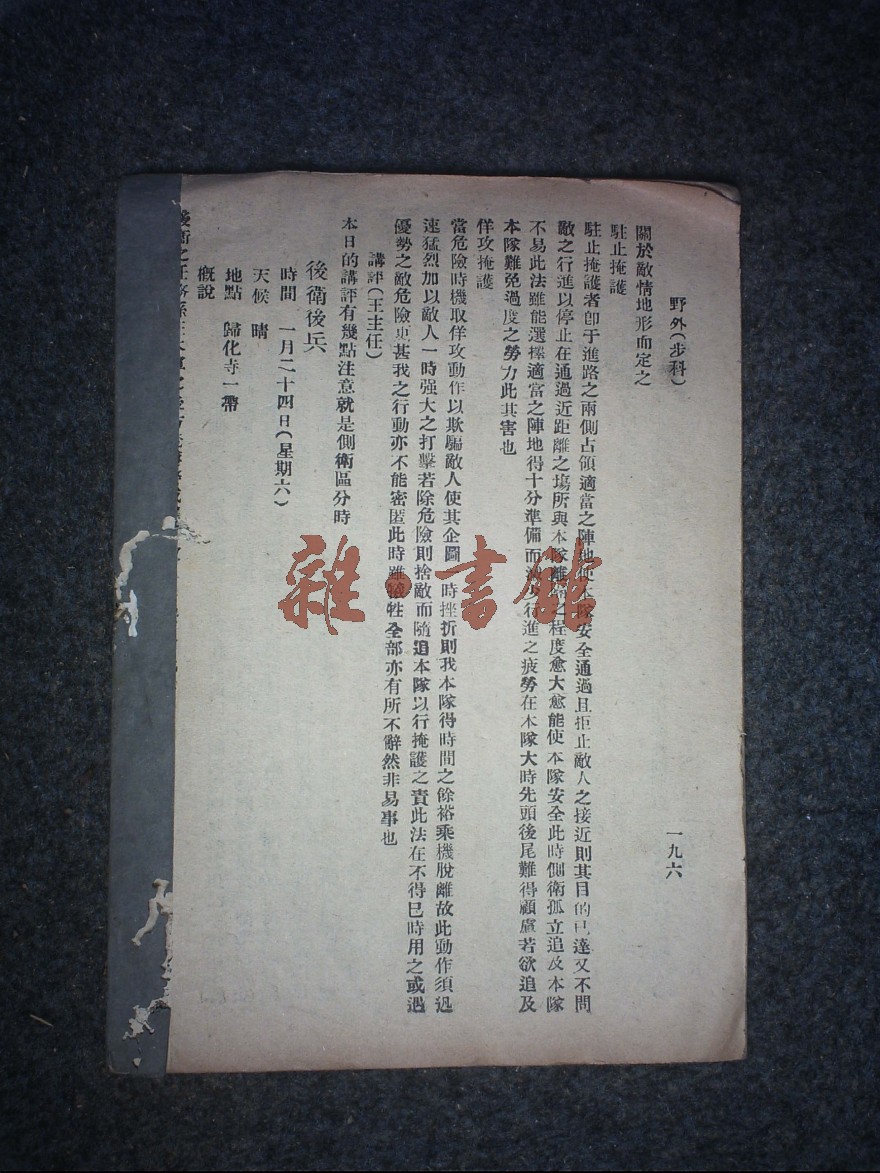 野外(步科) 一九六
關於敵情地形而定之
駐止掩護
駐止掩護者卽于進路之兩側占領適當之陣地使本隊安全通過且拒止敵人之接近則其目的已達又不問
敵之行進以停止在通過近距離之塲所與本隊離隔之程度愈大愈能使本隊安全此時側衛孤立追及本隊
不易此法雖能選擇適當之陣地得十分準備而 行進之疲勞在本隊大時先頭後尾難得顧慮若欲追及
本隊難免過度之勞力此其害也
佯攻掩護
當危險時機取佯攻動作以欺騙敵人使其企圖一時挫折則我本隊得時間之餘裕乘機脫離故此動作須迅
速猛烈加以敵人一時强大之打擊若除危險則捨敵而隨追本隊以行掩護之責此法在不得已時用之或遇
優勢之敵危險更甚我之行動亦不能密匿此時雖犧牲全部亦有所不辭然非易事也
講評(王主任)
本日的講評有幾點注意就是側衛區分時
後衛後兵
時間 一月二十四日(星期六)
天候 晴
地點 歸化寺一帶
槪說
後衛之任務系在
雜·書館